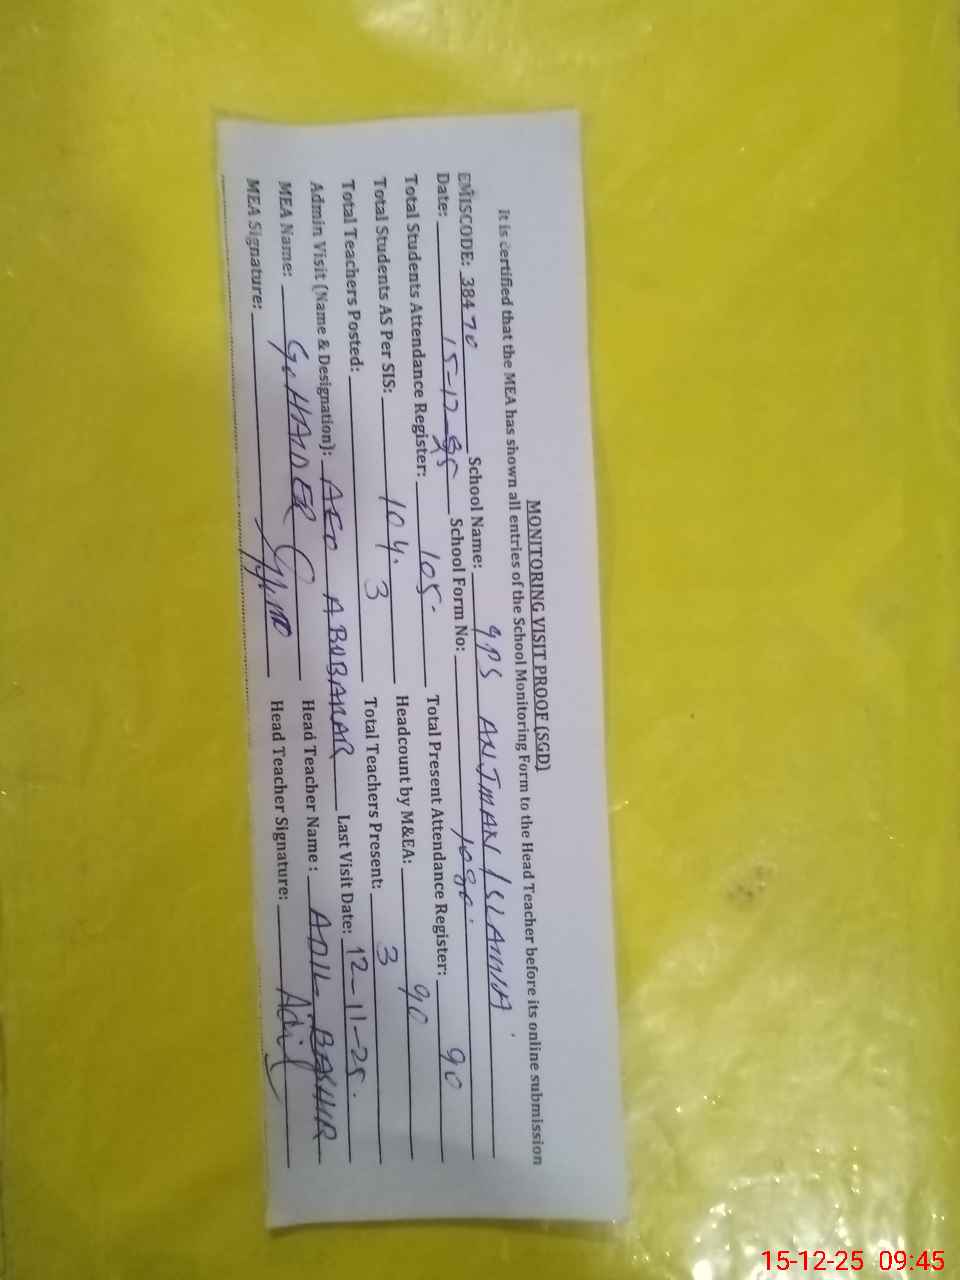 MONITORING VISIT PROOF (SGD)
It is certified that the MEA has shown all entries of the School Monitoring Form to the Head Teacher before its online submission
EMISCODE: 38470 School Name: GPS ANJMAN ISLAMIA
Date: 15-12-25 School Form No: 1080
Total Students Attendance Register: 105. Total Present Attendance Register: 90
Total Students AS Per SIS: 104. Headcount by M&EA: 90
Total Teachers Posted: 3 Total Teachers Present: 3
Admin Visit (Name & Designation): AEO ABUBAKAR Last Visit Date: 12-11-25.
MEA Name: G. HAIDER Head Teacher Name: ADIL BASHIR
MEA Signature: Head Teacher Signature: Adil
15-12-25 09:45